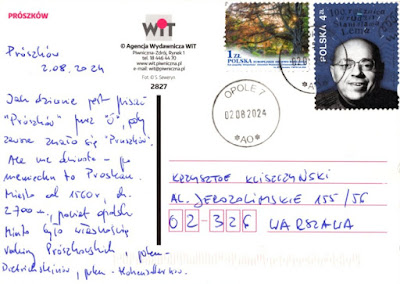 PRÓSZKÓW
Prószków
2.08.2024
Jak dziwnie jest pisać
"Prószków" przez "Ó", gdy
zawsze znało się "Pruszków".
Ale nie dziwota - po
niemiecku to Proskau.
Miasto od 1560 r., ok.
2700 -, powiat opolski
Miasto było własnością
rodziny Prószkowskich, potem
Dietrichsteinów, potem Hohenzollernów.
WIT
© Agencja Wydawnicza WIT
Piwniczna-Zdrój, Rynek 1
tel. 18 446 44 70
www.wit.piwniczna.pl
e-mail: wit@piwniczna.pl
Fot. © S. Seweryn
2827
1 ZŁ
POLSKA
POLSKA 4
Lema
OPOLE 7
02082024
*AO*
KRZYSZTOF KLISZCZYŃSKI
AL. JEROZOLIMSKIE 155/56
02-326 WARSZAWA